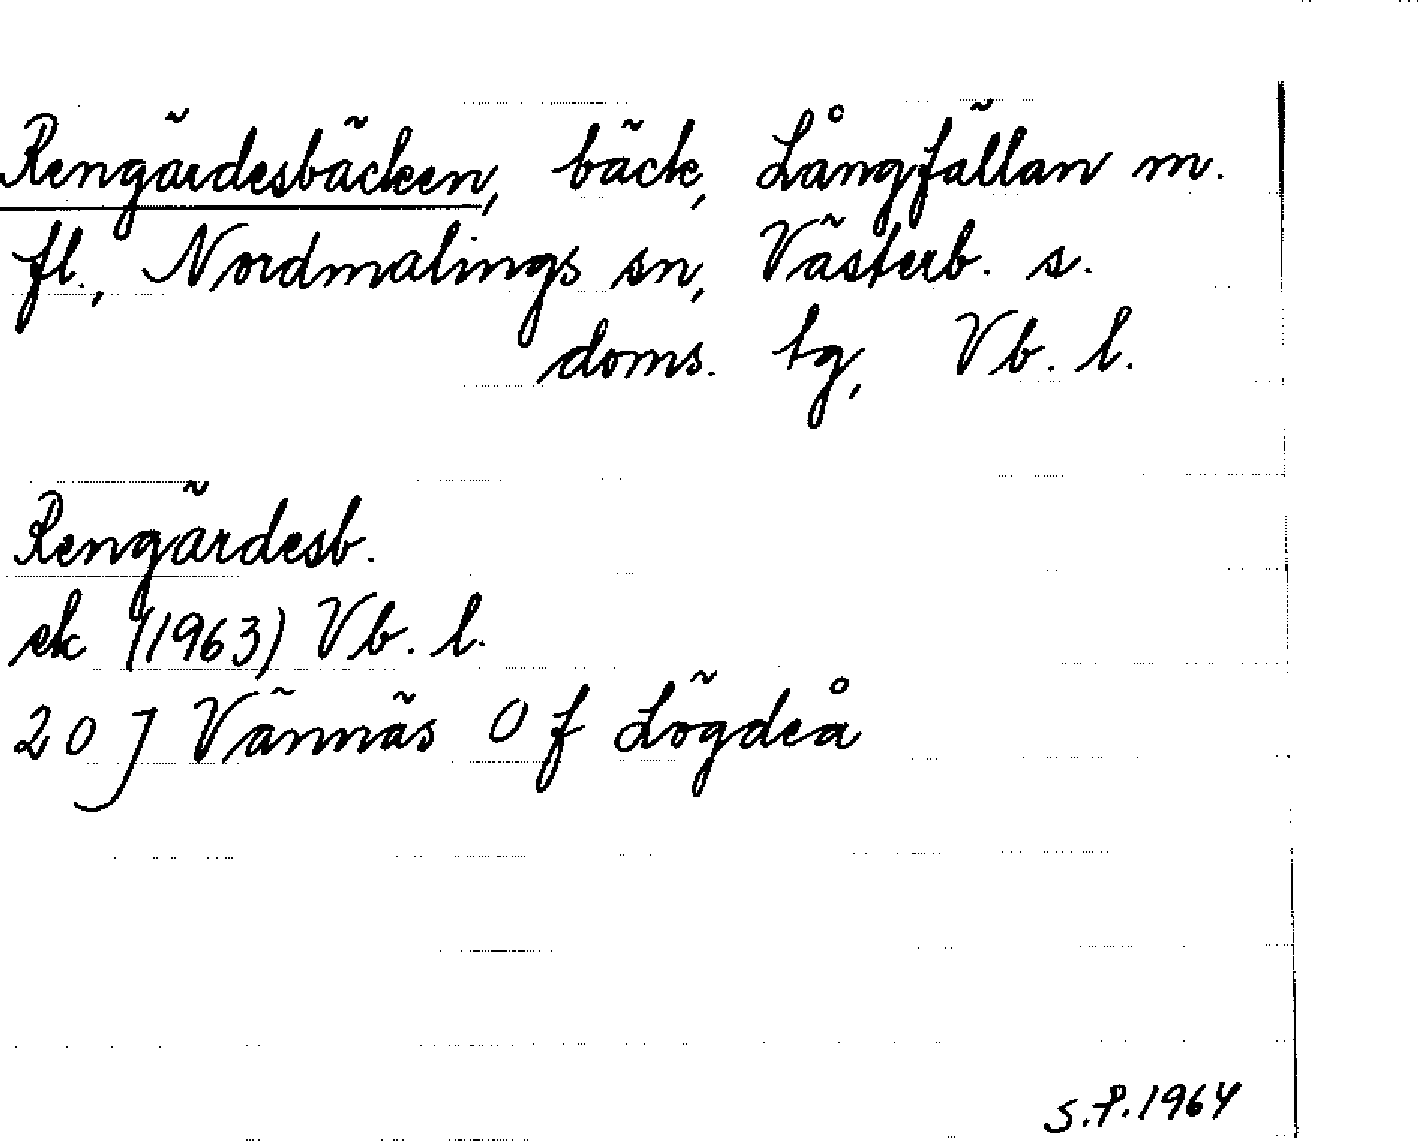 Rengärdesbäcken, bäck, Långfällan m.
fl., Nordmalings sn, Västerb. s.
doms. tg, Vb. l.
Rengärdesb.
ek (1963) Vb. l.
20 J Vännäs 0 f Lögdeå
S.P. 1964